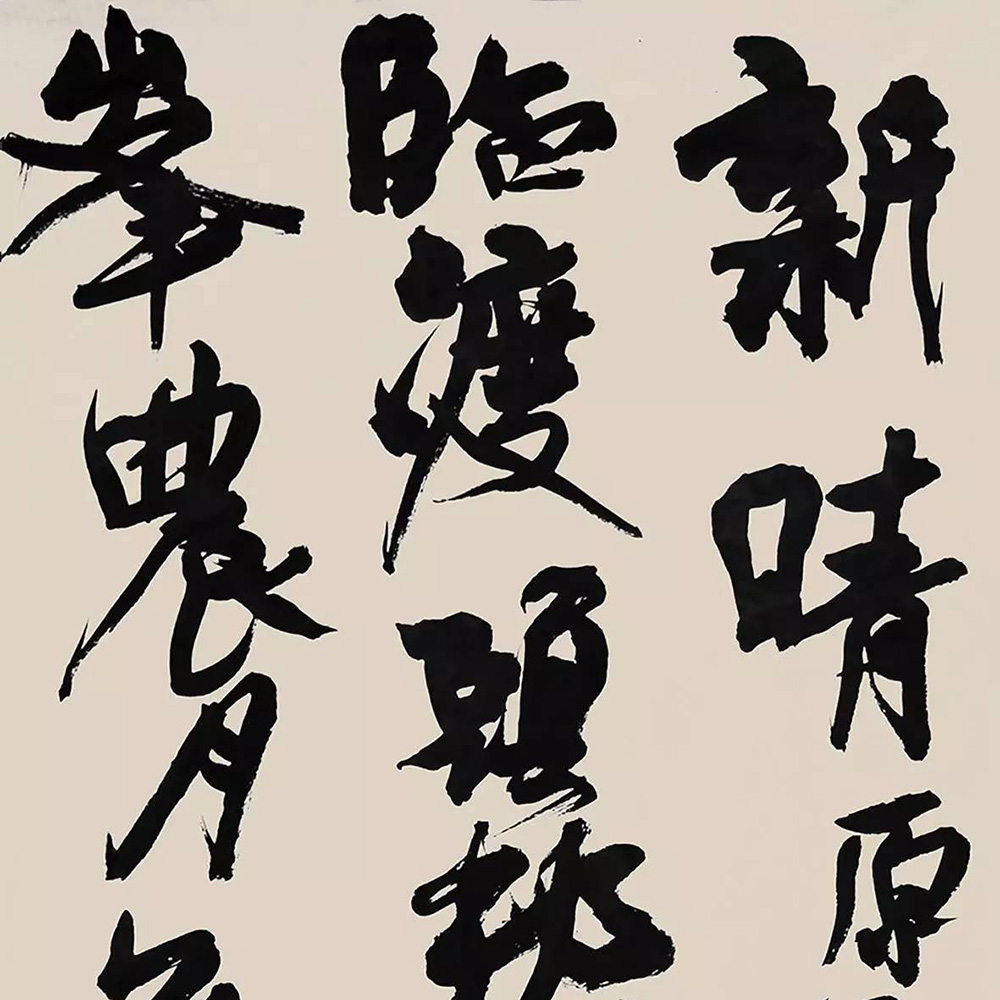 新晴原
臨渡頭
峯農月